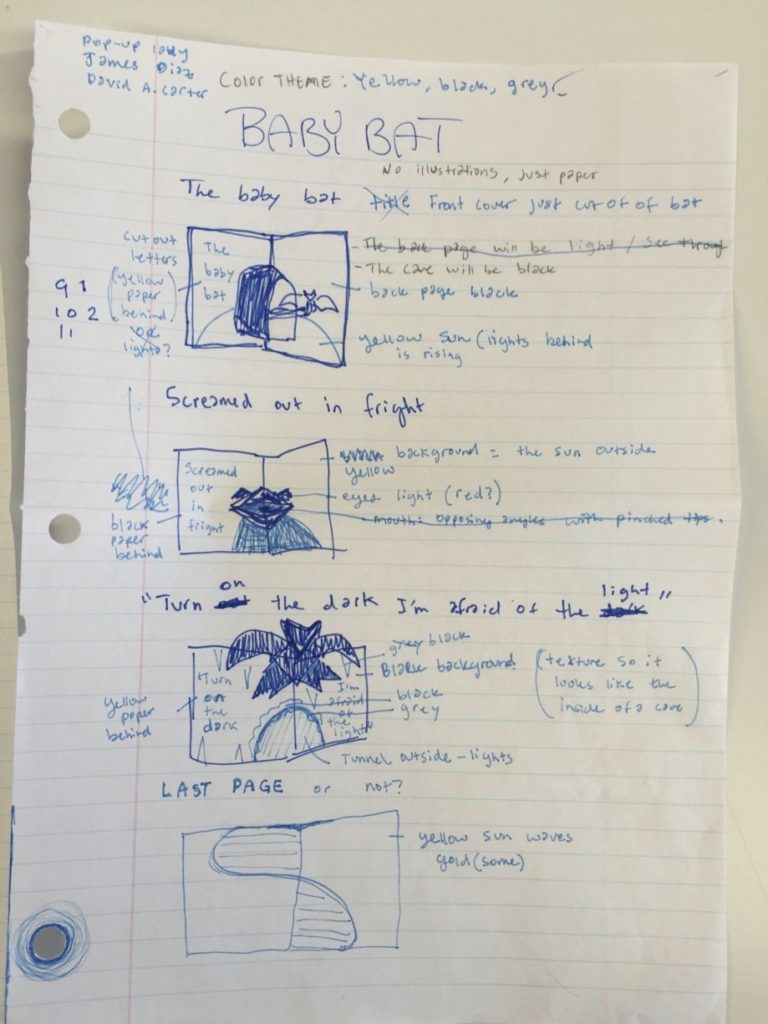 Pop-up lady
James Diaz
David A. Carter
Color THEME: Yellow, black, grey
BABY BAT
No illustrations, just paper
The baby bat title Front cover just cut of of bat
cut out
letters
(yellow
paper
behind)
or
lights?
9 1
10 2
11
The
baby
bat
- The back page will be light / see throug
- The cave will be black
back page black
yellow sun (lights behind
is rising
Screamed out in fright
Screamed
out
in
fright
black
paper
behind
background = the sun outside
yellow
eyes light (red?)
mouth: opposing angles with pinched tips.
on light
"Turn out the dark I'm afraid of the dark"
"Turn
on
the
dark
I'm
afraid
of
the
light"
yellow
paper
behind
grey black
Black background
black
grey
(texture so it
looks like the
inside of a cave)
Tunnel outside - lights
LAST PAGE or not?
yellow sun waves
gold (some)